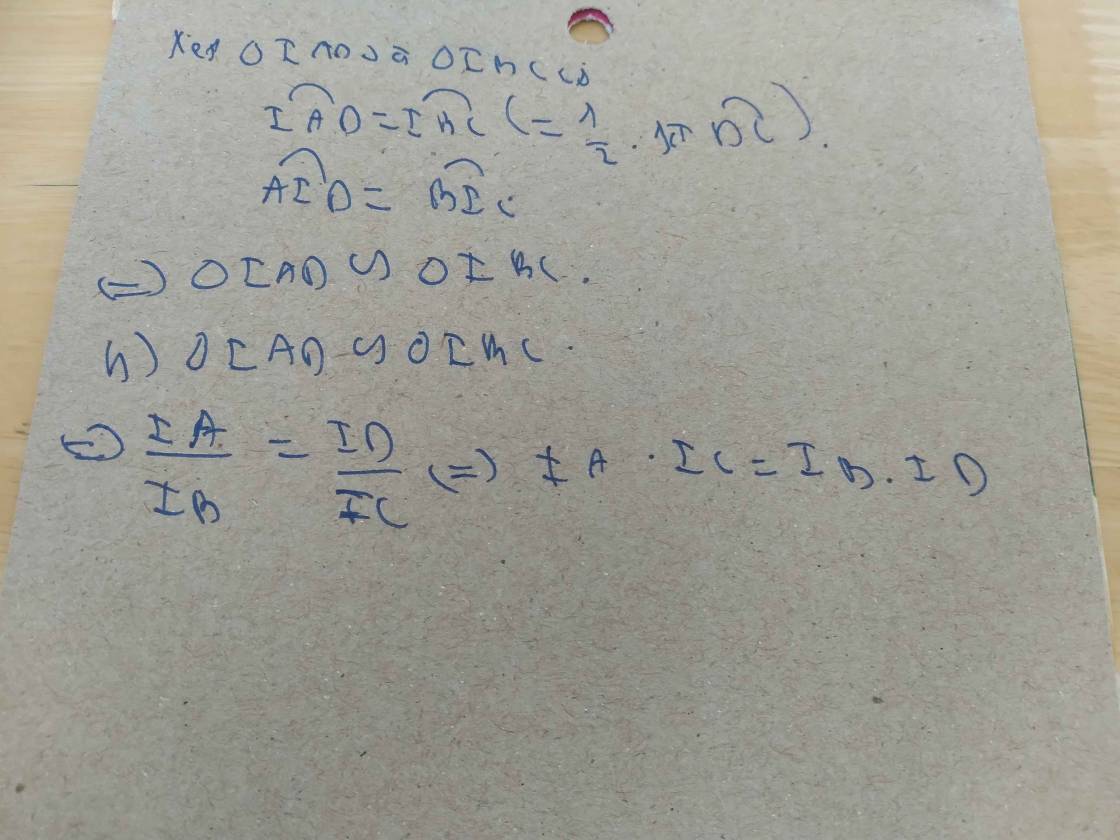 Xét Δ IAD và Δ IBC có
IAD = IBC (= 1/2 . sđ DC).
AID = BIC
(=) Δ IAD ∽ Δ IBC.
b) Δ IAD ∽ Δ IBC.
=) IA/IB = ID/IC (=) IA . IC = IB . ID